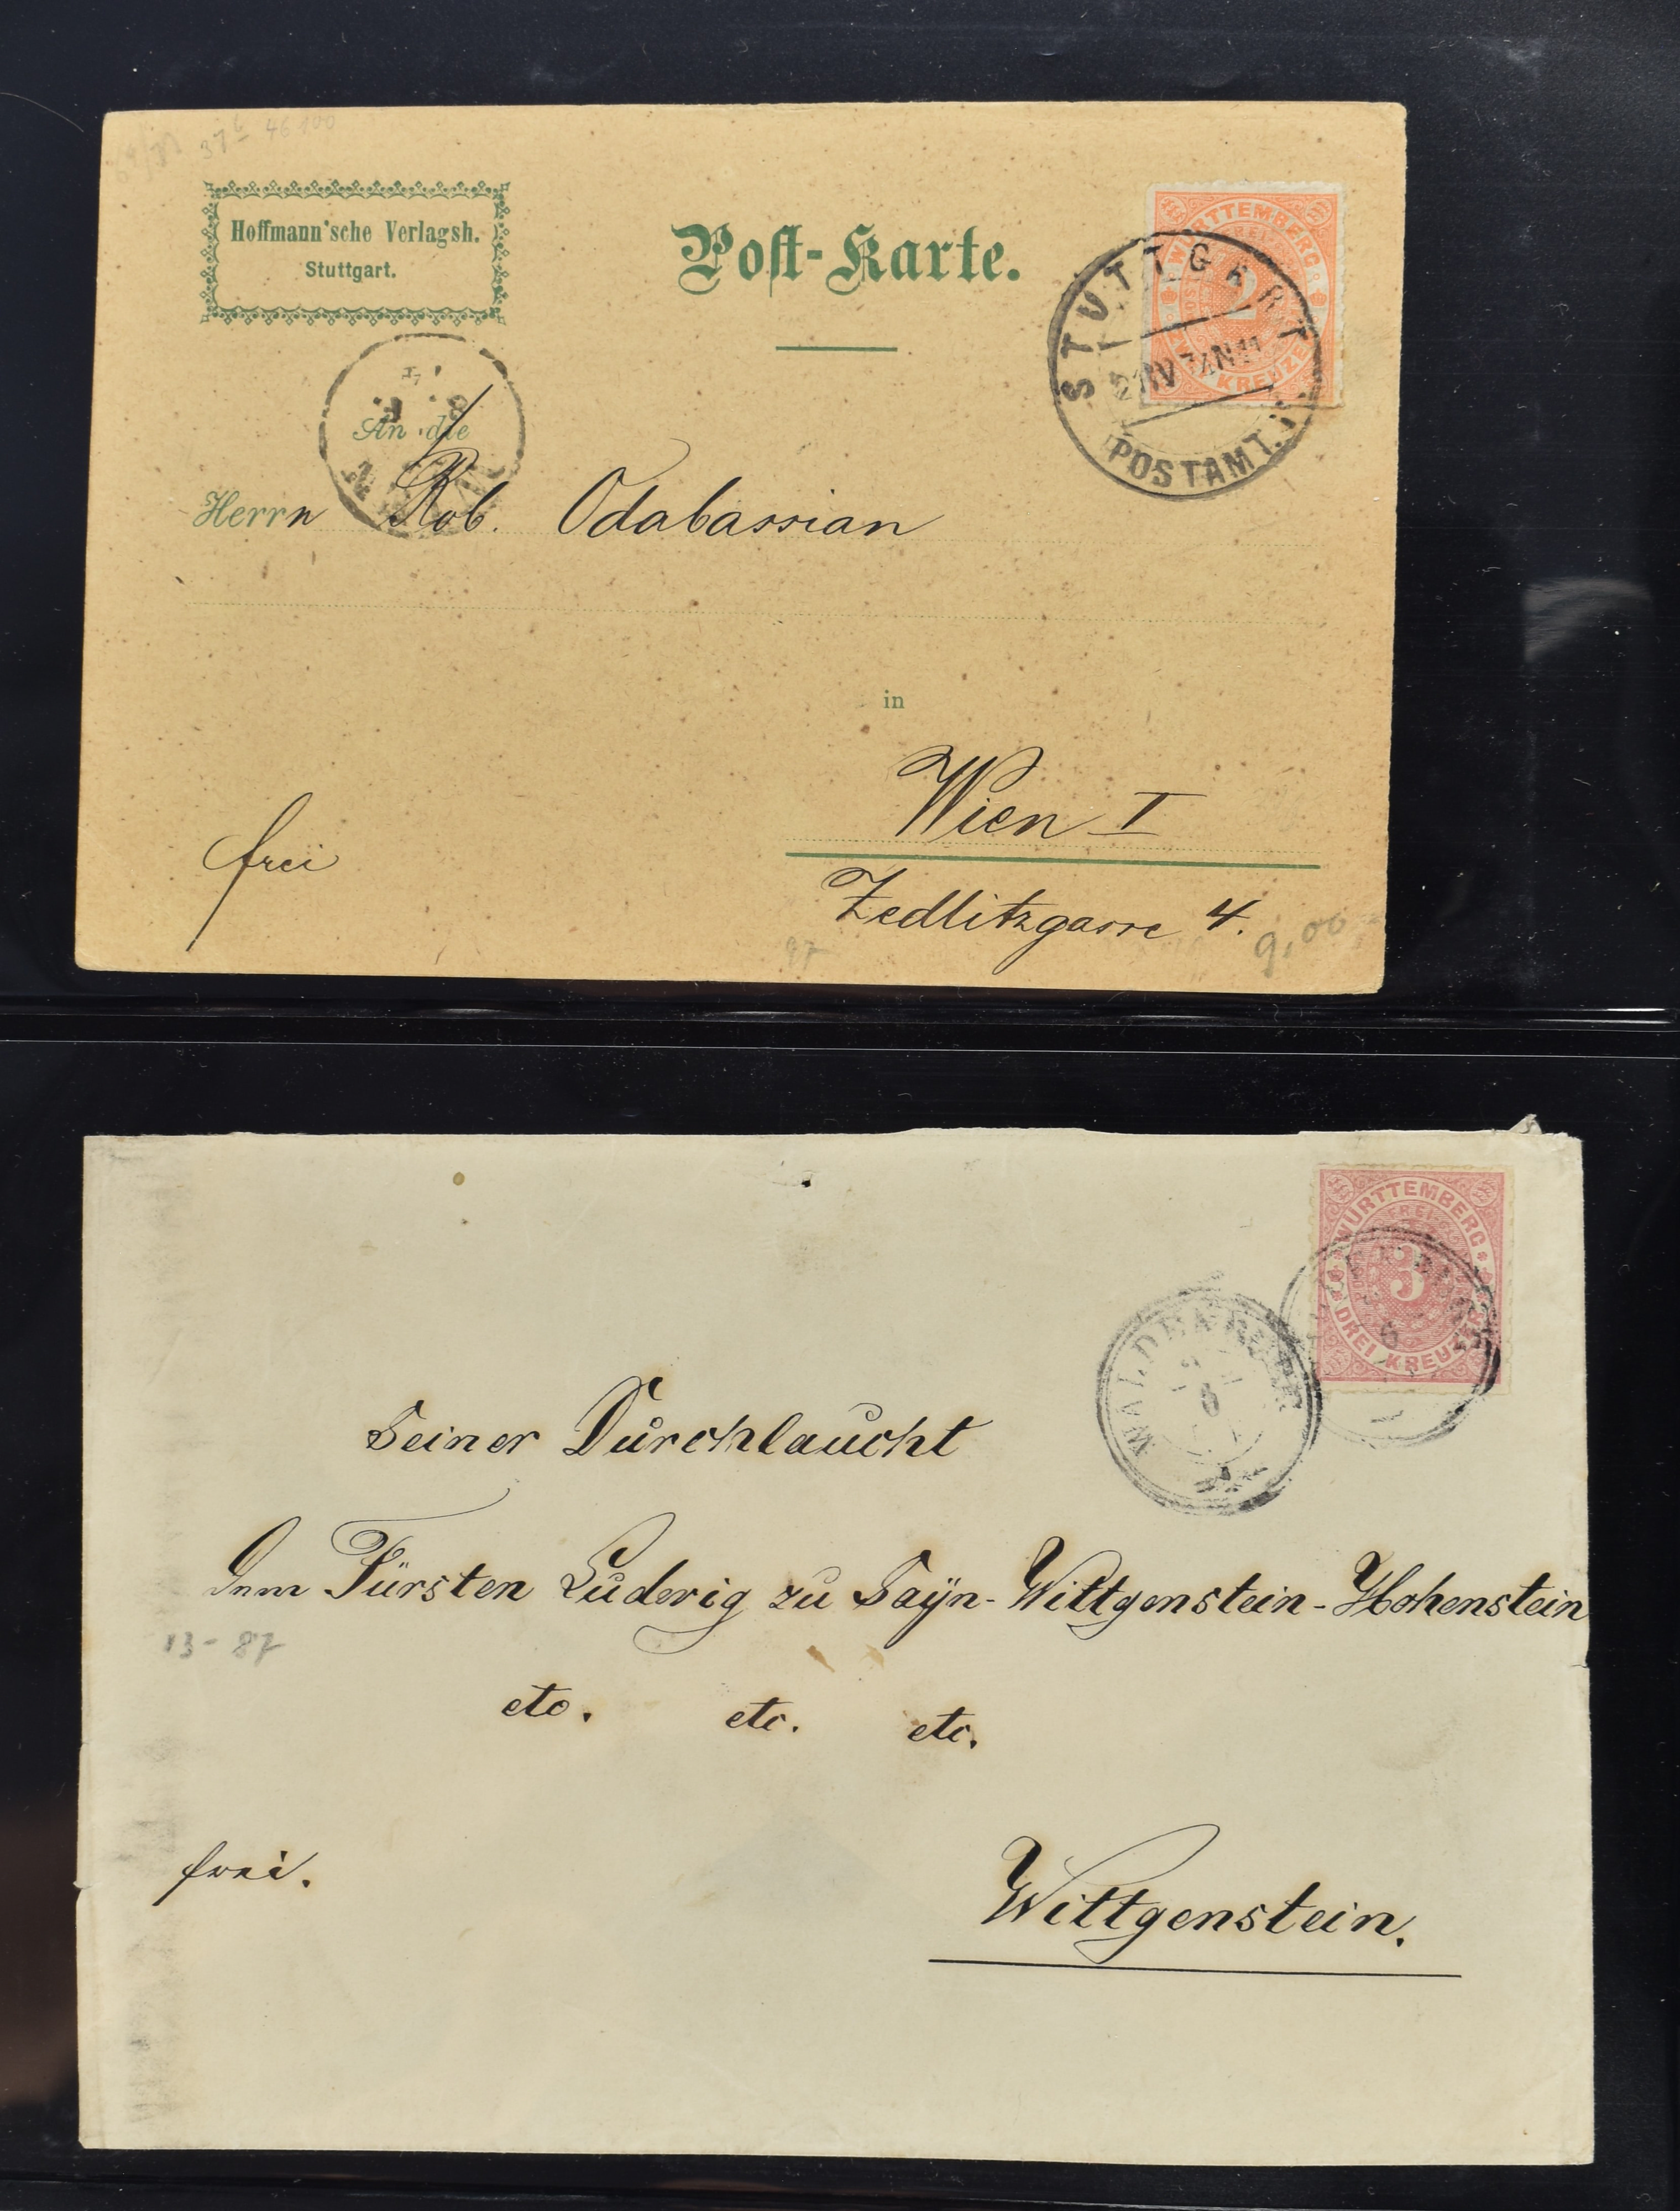 37 46 100
Hoffmann'sche Verlagsh.
Stuttgart.
Post-Karte.
WÜRTTEMBERG
2
KREUZER
STUTTGART
POSTAMT.
An die
Herrn Rob. Odabassian
in
Wien I
frei
Zedlitzgasse 4.
97
9,00
WÜRTTEMBERG
FREI
3
DREI KREUZER
Seiner Durchlaucht
Dem Fürsten Ludwig zu Sayn-Wittgenstein-Hohenstein
13-87
etc. etc. etc.
frei.
Wittgenstein.